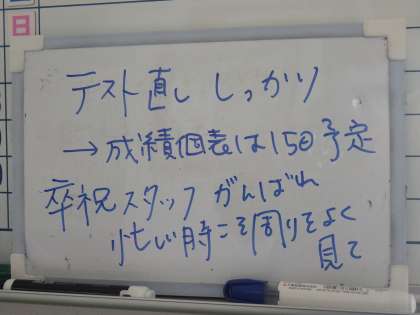 日
テスト直し しっかり
→ 成績個表は15日予定
卒祝スタッフ がんばれ
忙しい時こそ周りをよく
見て